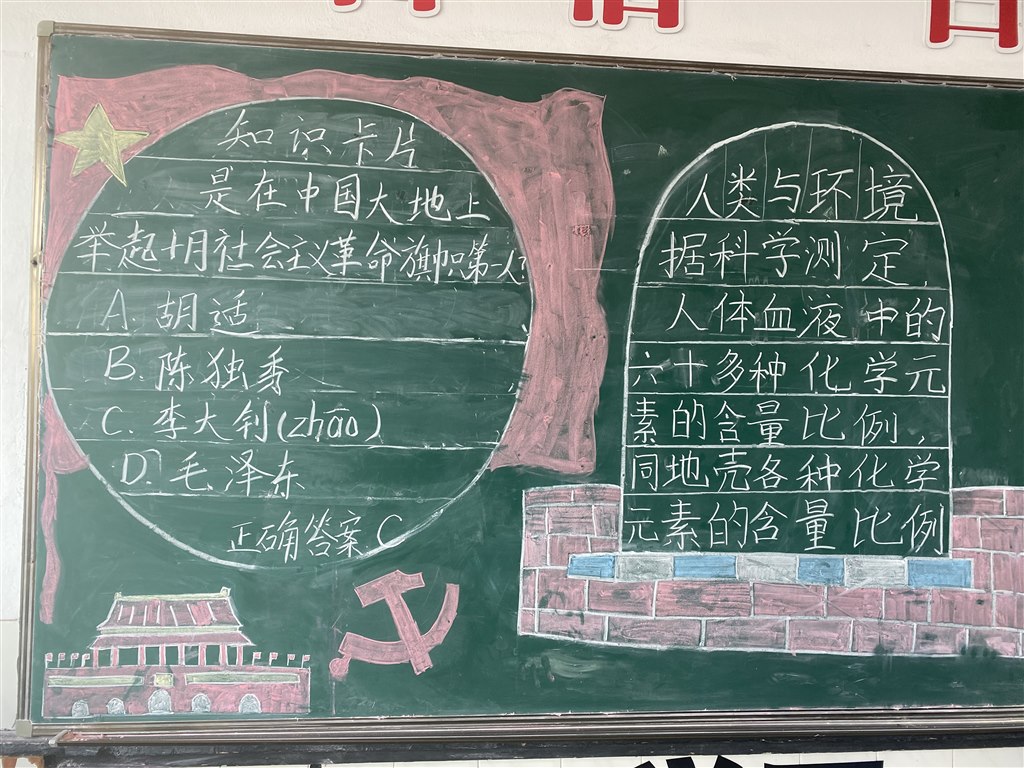 知识卡片
____是在中国大地上
举起十月社会主义革命旗帜第一人?
A. 胡适
B. 陈独秀
C. 李大钊(zhāo)
D. 毛泽东
正确答案 C
人类与环境
据科学测定,
人体血液中的
六十多种化学元
素的含量比例,
同地壳各种化学
元素的含量比例